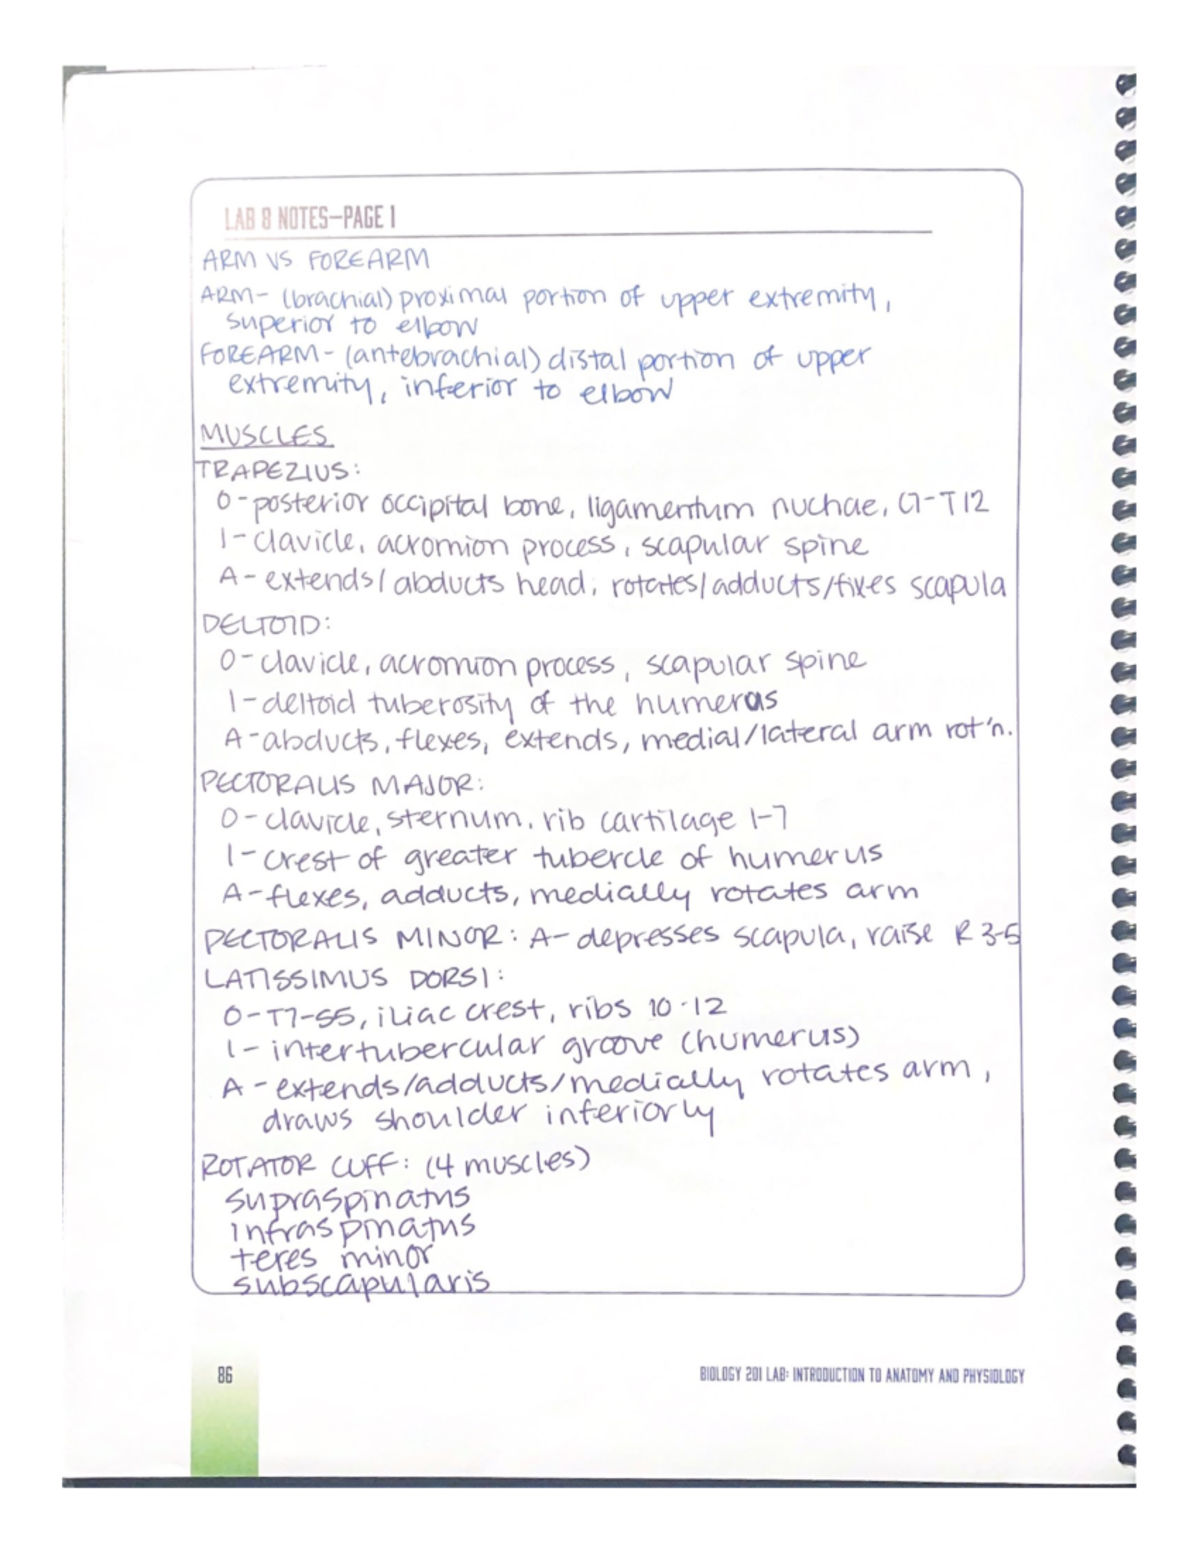 LAB 8 NOTES—PAGE 1
ARM VS FOREARM
ARM- (brachial) proximal portion of upper extremity,
superior to elbow
FOREARM- (antebrachial) distal portion of upper
extremity, inferior to elbow
MUSCLES
TRAPEZIUS:
O-posterior occipital bone, ligamentum nuchae, C7-T12
I-clavicle, acromion process, scapular spine
A-extends/abducts head; rotates/adducts/fixes scapula
DELTOID:
O-clavicle, acromion process, scapular spine
I-deltoid tuberosity of the humerus
A-abducts, flexes, extends, medial/lateral arm rot'n.
PECTORALIS MAJOR:
O-clavicle, sternum, rib cartilage 1-7
I-crest of greater tubercle of humerus
A-flexes, adducts, medially rotates arm
PECTORALIS MINOR: A-depresses scapula, raise R 3-5
LATISSIMUS DORSI:
O-T7-S5, iliac crest, ribs 10-12
I-intertubercular groove (humerus)
A-extends/adducts/medially rotates arm,
draws shoulder inferiorly
ROTATOR CUFF: (4 muscles)
supraspinatus
infraspinatus
teres minor
subscapularis
86
BIOLOGY 201 LAB: INTRODUCTION TO ANATOMY AND PHYSIOLOGY